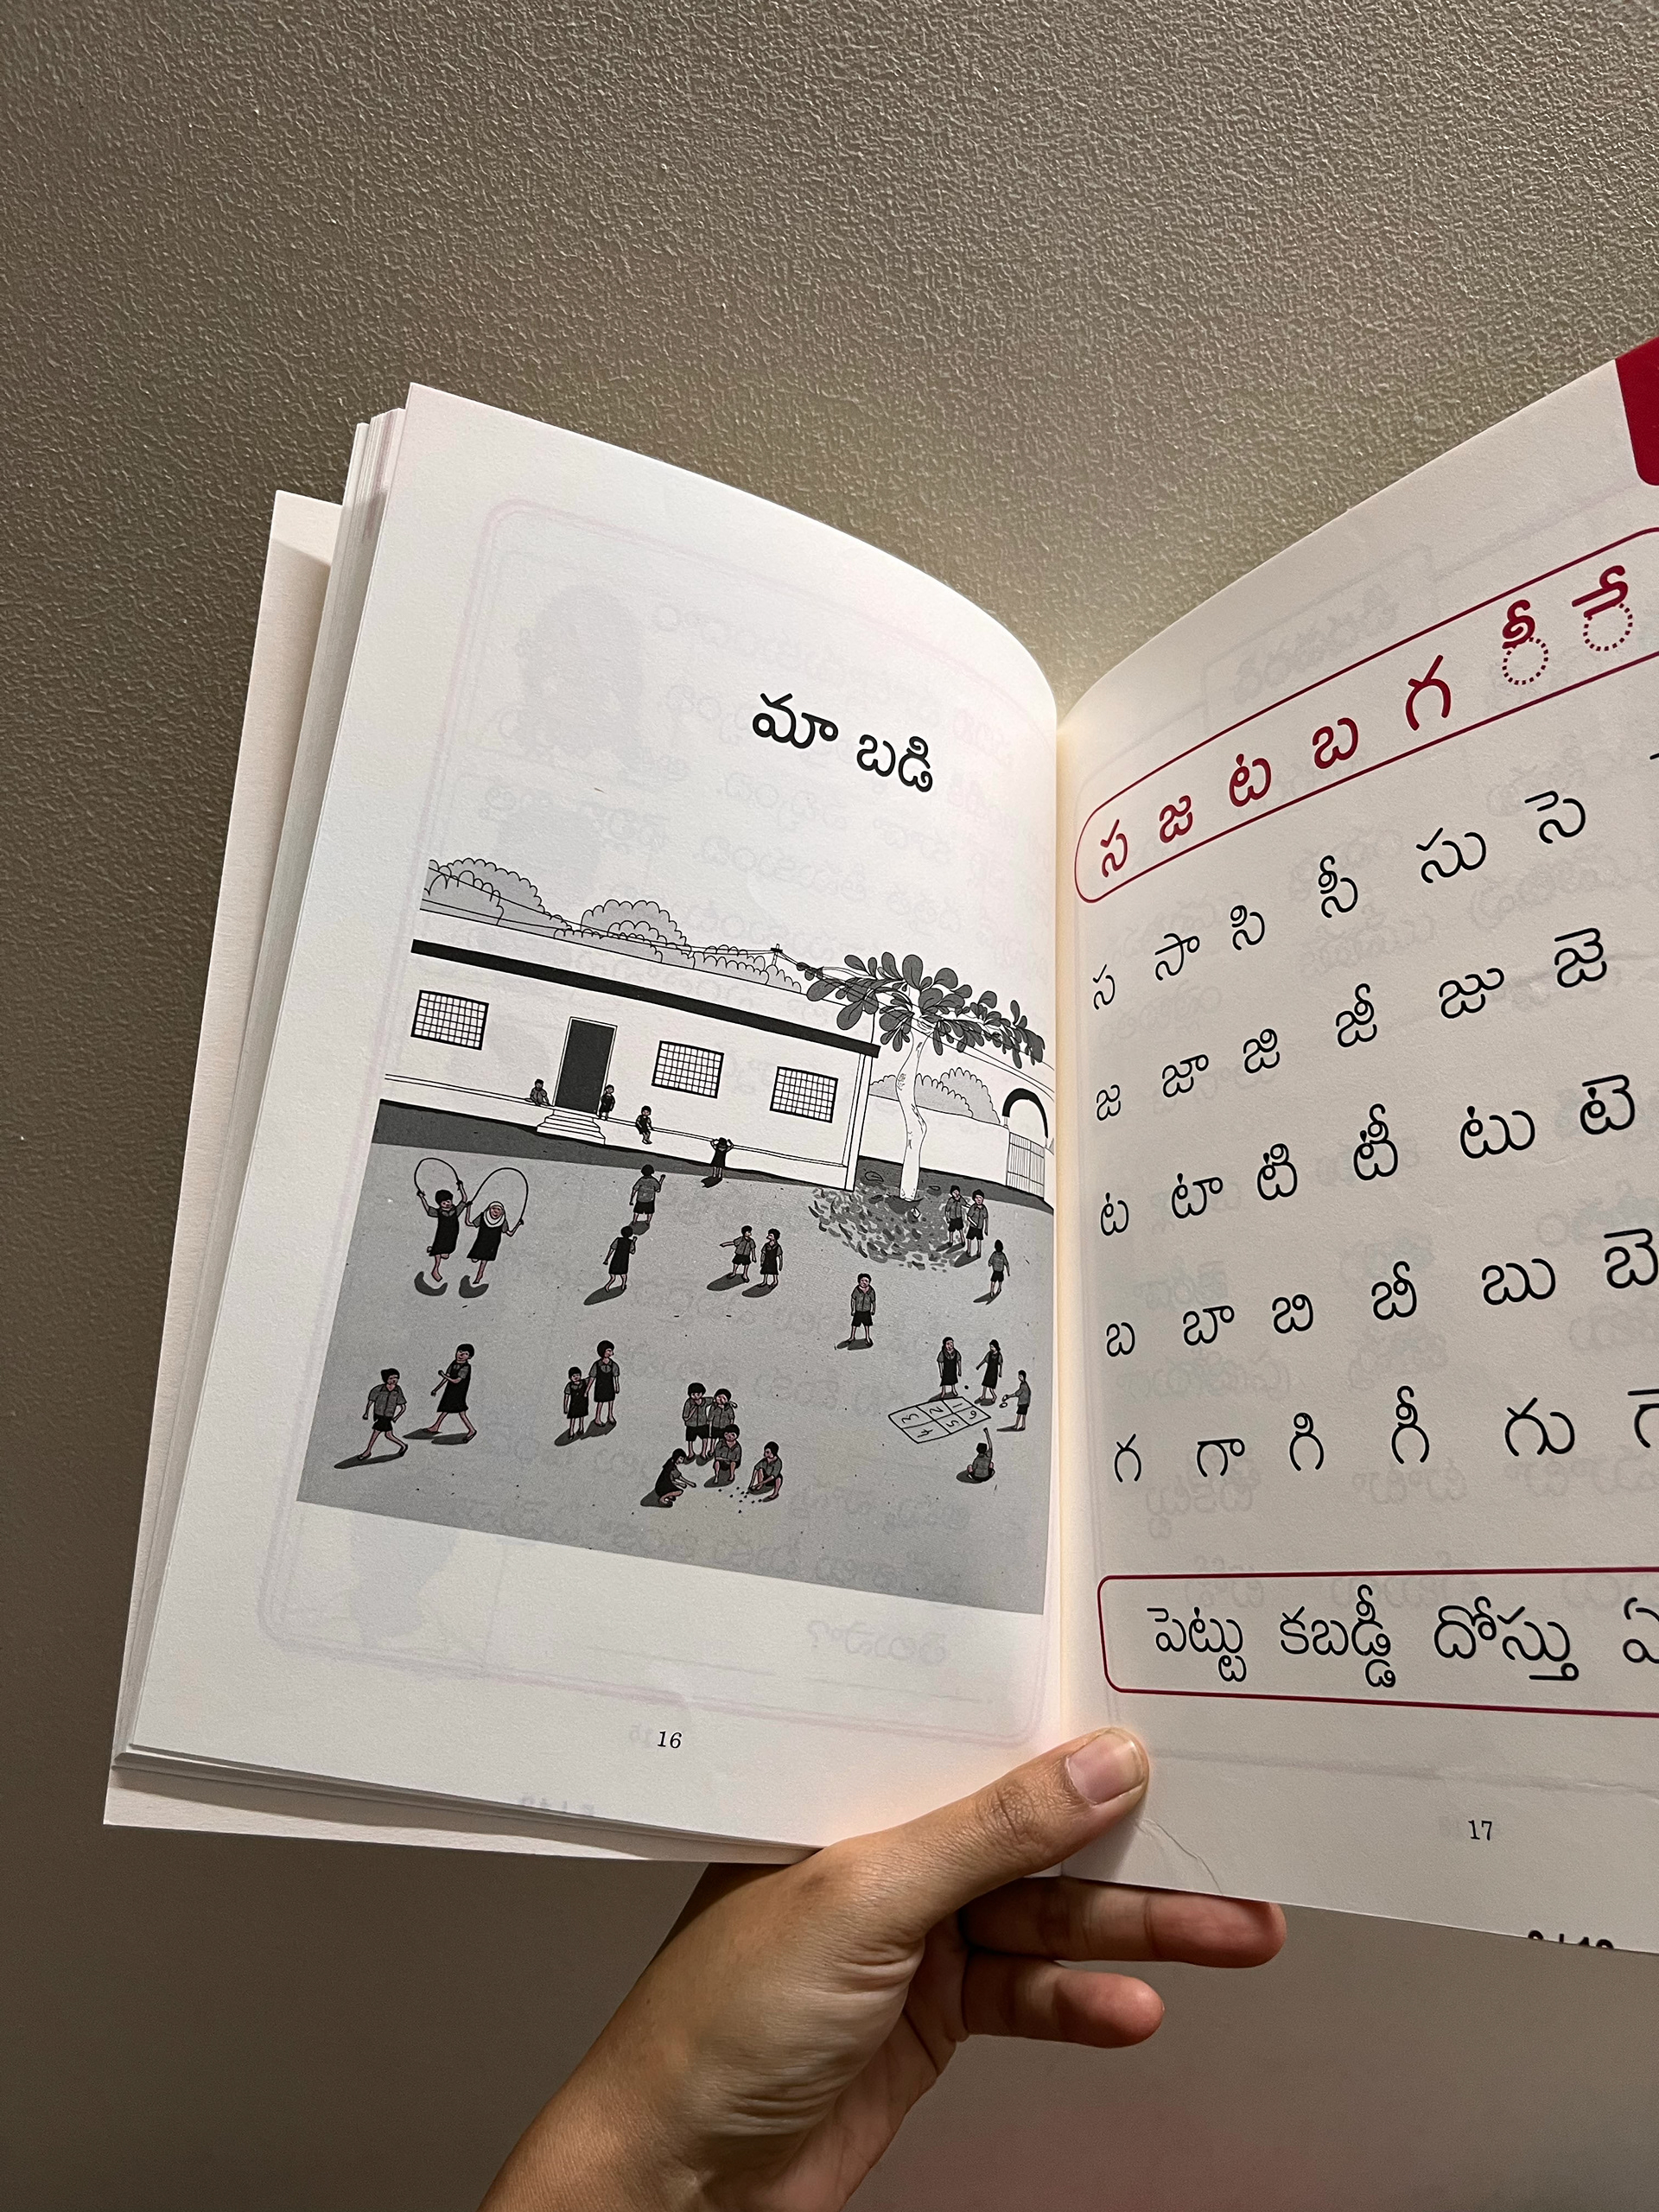 మా బడి
16
స జ ట బ గ ీ ే
స సా సి సీ సు సె
జ జా జి జీ జు జె
ట టా టి టీ టు టె
బ బా బి బీ బు బె
గ గా గి గీ గు
పెట్టు కబడ్డీ దోస్తు
17